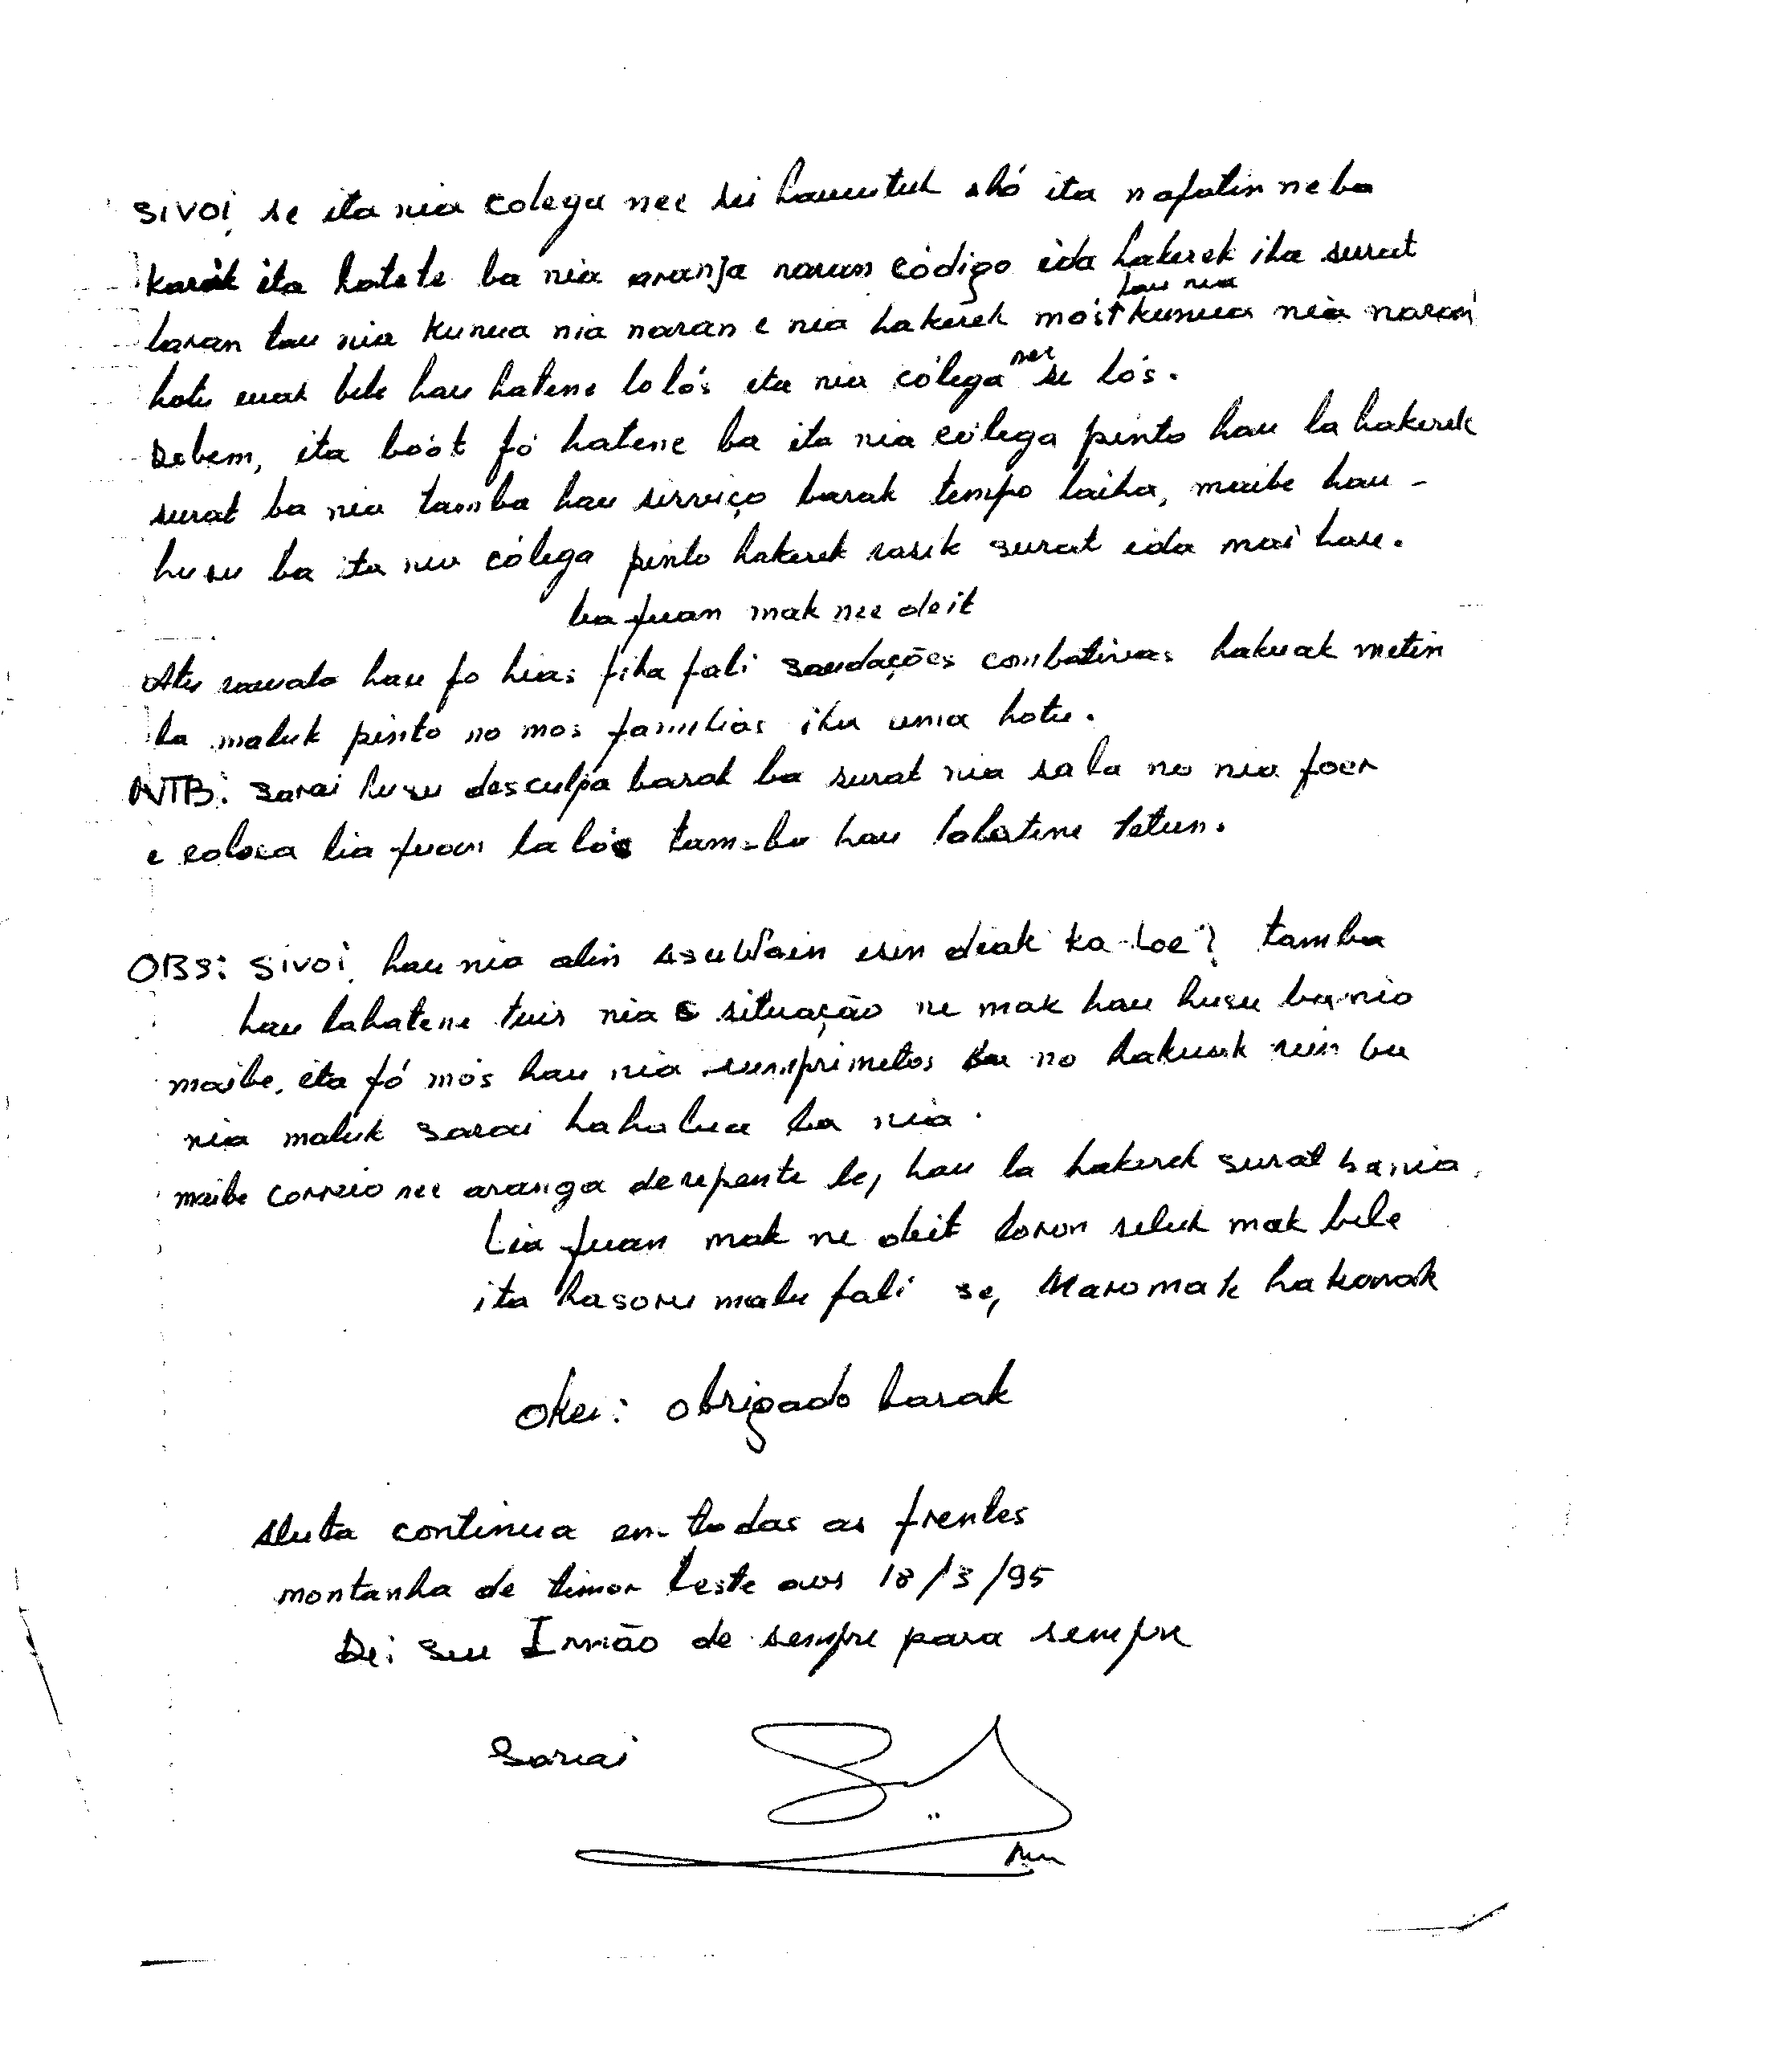 SIVOI, se ita nia colega nee sei hamutuk ahó ita nafatin neba
karik ita hatete ba nia aranja naran código ida hakerek iha surat
laran tau nia kunua nia naran e nia hakerek mós hau nia kunua nia naran
hotu mak bele hau hatene lolós ita nia cólega nee se lós.
Sebem, ita boót fó hatene ba ita nia cólega pinto hau la hakerek
surat ba nia tamba hau serviço barak tempo laiha, maibe hau -
husu ba ita nia cólega pinto hakerek rasik surat ida mai hau.
lia fuan mak nee deit
Atu ramata hau fo hias fila fali saudações combativas hakuak metin
ba maluk pinto no mos familias iha uma hotu.
NTB: Sarai husu desculpa barak ba surat nia sala no nia foer
e coloca lia fuan la lós tamba hau lahatene tetun.
OBS: SIVOI, hau nia alin Asuwain isin diak ka lae? tamba
hau lahatene tuir nia situação ne mak hau husu ba nia
maibe, ita fó mós hau nia cumprimetos no hakuak rin ba
nia maluk Sarai haholua ba nia.
maibe correio nee aranga derepente le, hau la hakerek surat ba nia.
Lia fuan mak ne deit loron seluk mak bele
ita hasoru malu fali se, Maromak hakarak
Okei: obrigado barak
Aluta continua em todas as frentes
montanha de timor leste aos 18/3/95
Dei seu Irmão de sempre para sempre
Sarai